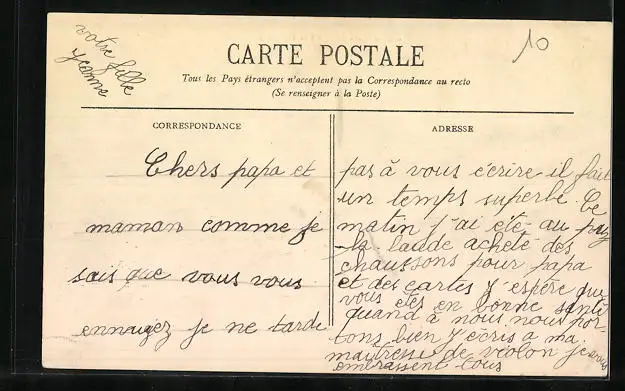 votre fille
Yvonne
10
CARTE POSTALE
Tous les Pays étrangers n'acceptent pas la Correspondance au recto
(Se renseigner à la Poste)
CORRESPONDANCE
Chers papa et
maman comme je
sais que vous vous
ennuyez je ne tarde
ADRESSE
pas à vous écrire il fait
un temps superbe Ce
matin j'ai été au
acheté des
chaussons pour papa
et des cartes J'espère que
vous êtes en bonne santé
quand à nous nous por-
tons bien J'écris a ma
maîtresse de violon je vous
embrassent tous